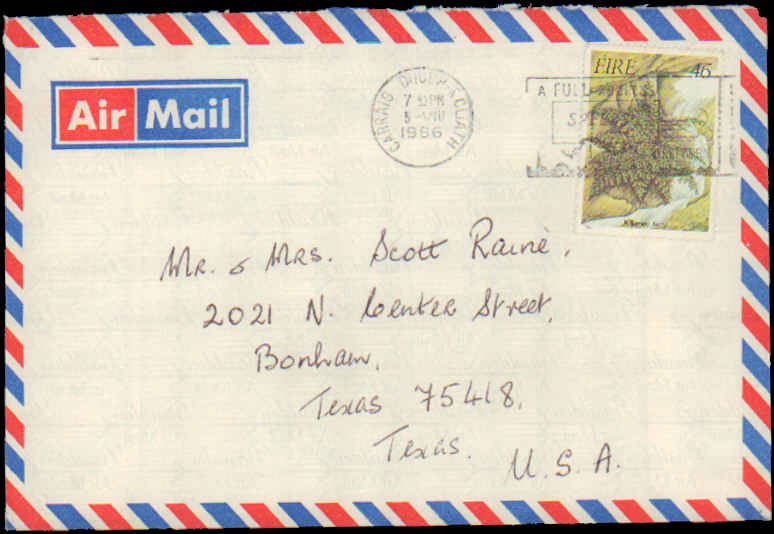 Air Mail
CARRAIG DHUBH
A CLIATH
7 30PM
1986
A FULL
ÉIRE 46
Mr. & Mrs. Scott Raine,
2021 N. Center Street,
Bonham,
Texas 75418,
Texas.
U. S. A.